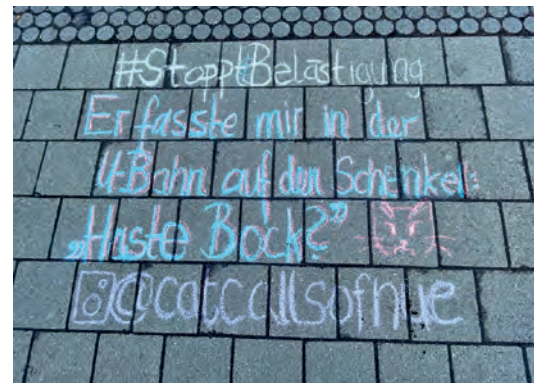 #StopptBelästigung
Er fasste mir in der
U-Bahn auf den Schenkel:
„Haste Bock?”
@catcallsofnue